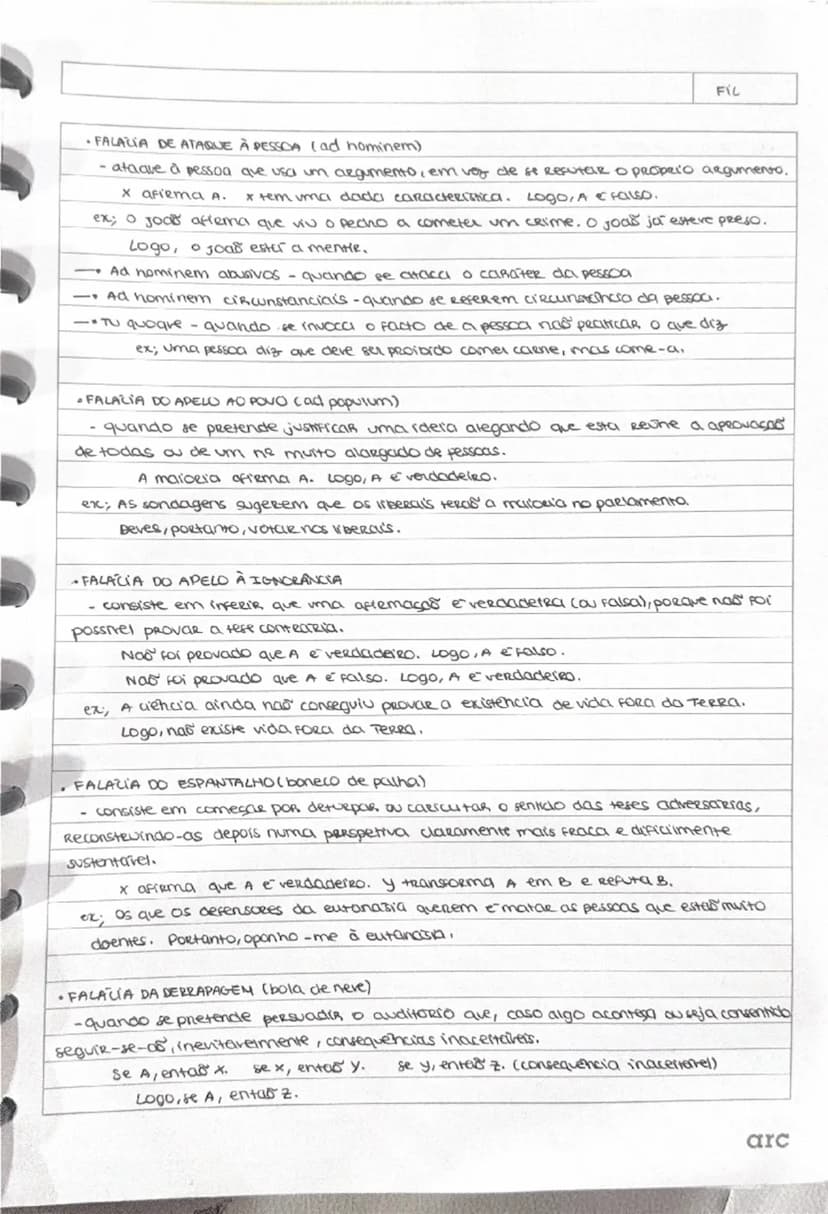 FIL
• FALÁCIA DE ATAQUE À PESSOA (ad hominem)
- ataque à pessoa que usa um argumento, em vez de se refutar o próprio argumento.
x afirma A. x tem uma dada característica. Logo, A é falso.
ex; O João afirma que viu o Pedro a cometer um crime. O João já esteve preso.
Logo, o João está a mentir.
→ • Ad hominem abusivos - quando se ataca o caráter da pessoa
→ • Ad hominem circunstanciais - quando se referem circunstância da pessoa.
→ • Tu quoque - quando se invoca o facto de a pessoa não praticar o que diz
ex; uma pessoa diz que deve ser proibido comer carne, mas come-a.
• FALÁCIA DO APELO AO POVO (ad populum)
- quando se pretende justificar uma ideia alegando que esta reúne a aprovação
de todas ou de um nº muito alargado de pessoas.
A maioria afirma A. Logo, A é verdadeiro.
ex; As sondagens sugerem que os liberais terão a maioria no parlamento.
Deves, portanto, votar nos liberais.
• FALÁCIA DO APELO À IGNORÂNCIA
- consiste em inferir que uma afirmação é verdadeira (ou falsa), porque não foi
possível provar a tese contrária.
Não foi provado que A é verdadeiro. Logo, A é falso.
Não foi provado que A é falso. Logo, A é verdadeiro.
ex; A ciência ainda não conseguiu provar a existência de vida fora da Terra.
Logo, não existe vida fora da Terra.
• FALÁCIA DO ESPANTALHO (boneco de palha)
- consiste em começar por deturpar ou caricutar o sentido das teses adversárias,
reconstruindo-as depois numa perspetiva claramente mais fraca e dificilmente
sustentável.
x afirma que A é verdadeiro. y transforma A em B e refuta B.
ex; Os que os defensores da eutanásia querem é matar as pessoas que estão muito
doentes. Portanto, oponho-me à eutanásia.
• FALÁCIA DA DERRAPAGEM (bola de neve)
- quando se pretende persuadir o auditório que, caso algo aconteça ou seja consentido
seguir-se-ão, inevitavelmente, consequências inaceitáveis.
Se A, então x. Se x, então y. Se y, então z. (consequência inaceitável)
Logo, se A, então z.
arc